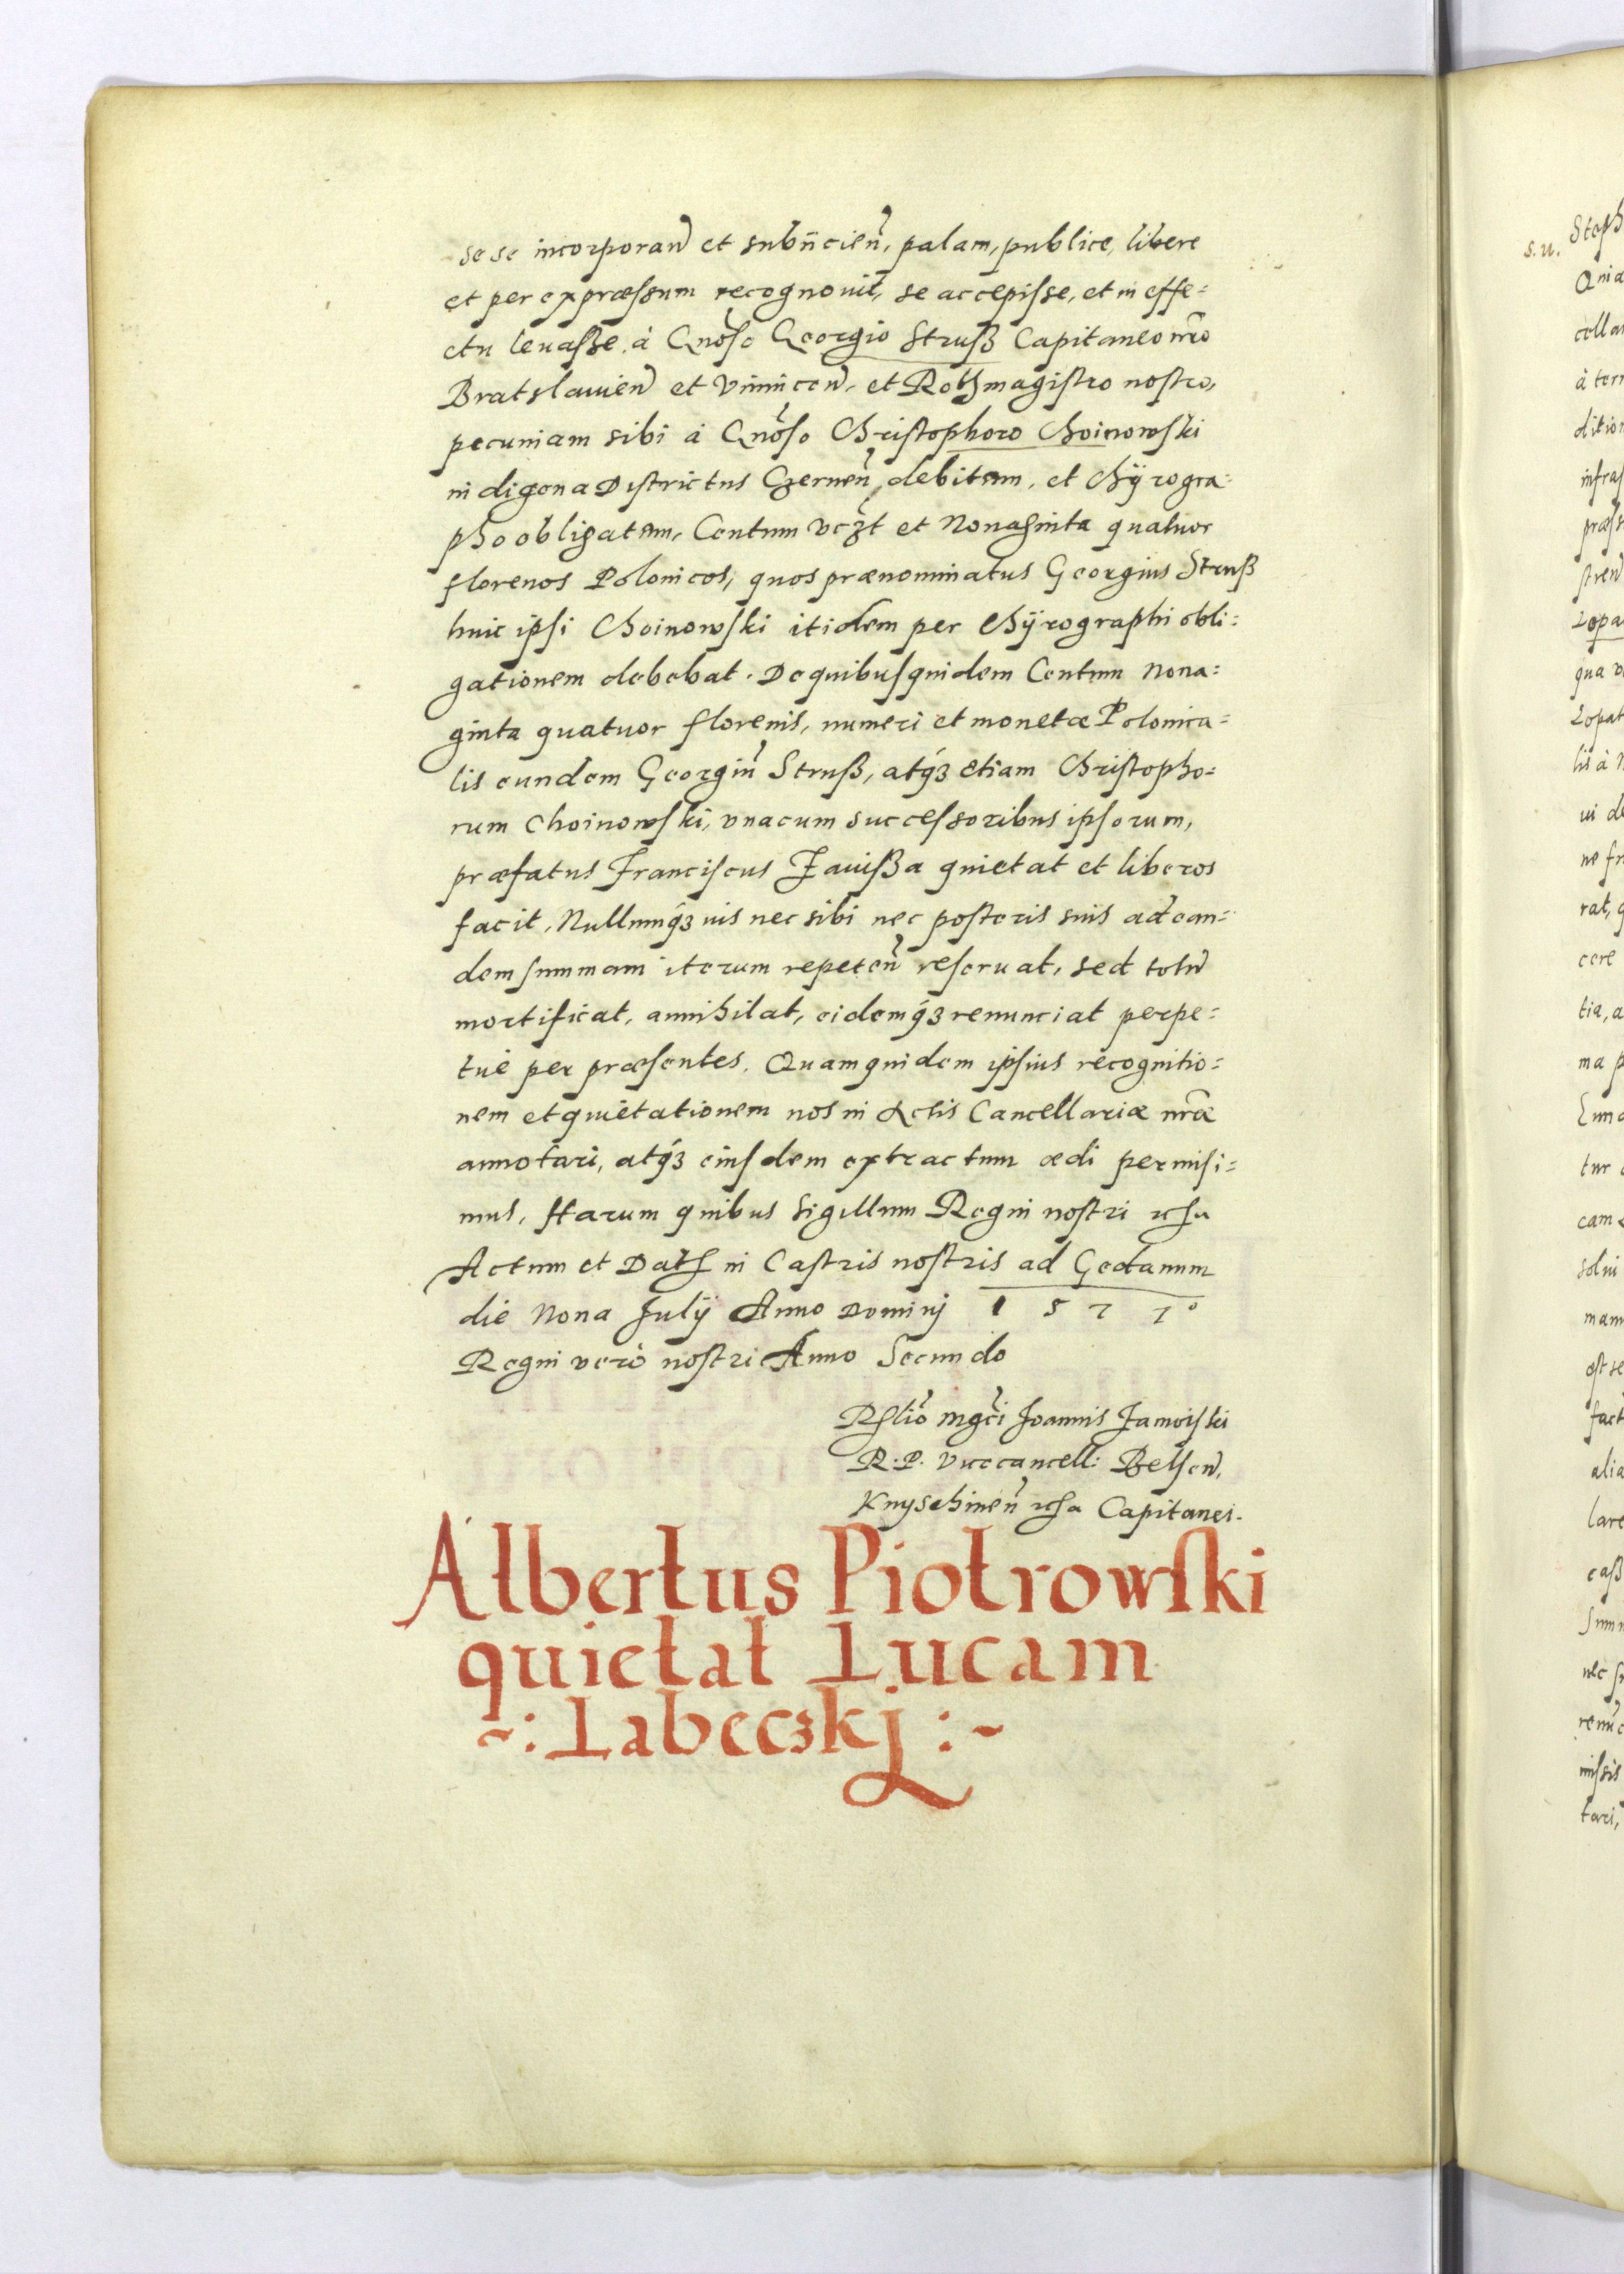 sese incorporan̄ et subn̄cien̄, palam, publice, libere
et per expræssum recognouit, se accepisse, et in effe=
ctu leuasse. à Gnōso Georgio Struß Capitaneo nr̄o
Bratslauien̄ et Vinnicen̄. et Rothmagistro nostro,
pecuniam sibi á Gnōso Christophoro Choinowski
indigena Districtus Czernen̄ debitam, et Chÿrogra=
pho obligatam, Centum vczt et Nonaginta quatuor
florenos Polonicos, quos prænominatus Georgius Struß
huic ipsi Choinowski itidem per Chÿrographi obli=
gationem debebat. De quibusquidem Centum Nona=
ginta quatuor florenis, numeri et monetæ Polonica=
lis eundem Georgiū Struß, atq́ꝫ etiam Christopho=
rum Choinowski, vnacum successoribus ipsorum,
præfatus Franciscus Zauißa quietat et liberos
facit, Nullumq́ꝫ ius nec sibi nec posteris suis ad ean=
dem summam iterum repeten̄ reseruat, sed totū
mortificat, annihilat, eidemq́ꝫ renunciat perpe=
tuè per præsentes. Quamquidem ipsius recognitio=
nem et quietationem nos in Actis Cancellariæ nr̄æ
annotari, atq́ꝫ eiusdem extractum ædi permisi=
mus, Harum quibus Sigillum Regni nostri
Actum et Dat in Castris nostris ad Gedanum
die Nona Julij Anno Dominj 1 5 7 7°
Regni verò nostri Anno Secundo
Rltio mgci Joannis Zamoiski
R. P. Vicecancell: Belsen̄,
Knyschinen̄ Capitanei.
Albertus Piotrowski
quietat Lucam
~: Labecskj :~
s. u.